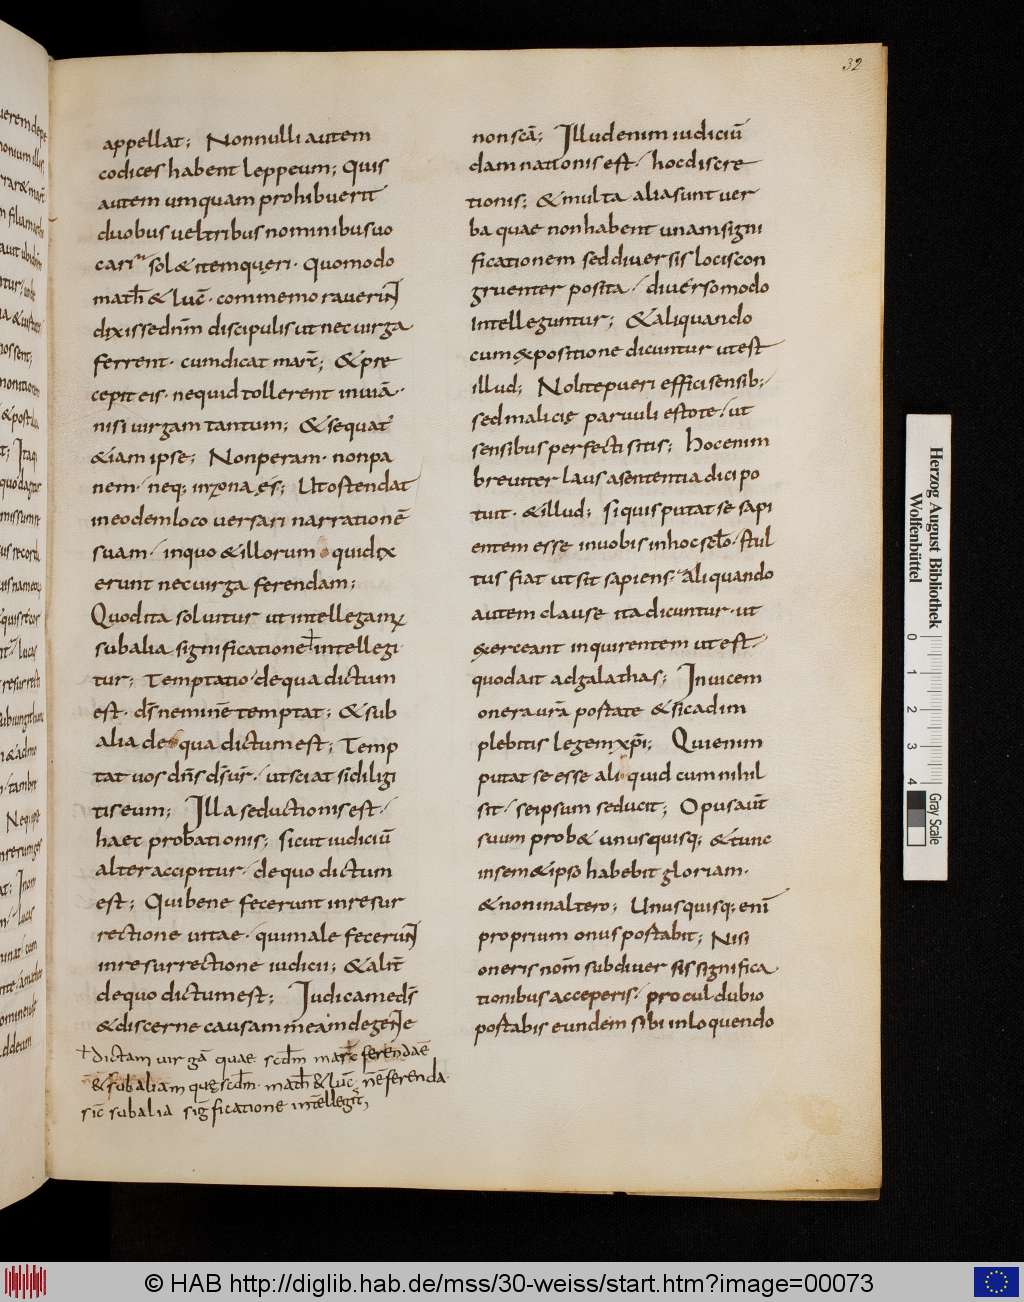 32
appellat; Nonnulli autem
codices habent leppeum; Quis
autem umquam prohibuerit
duobus uel tribus nominibus uo
cari sol & item quęri. Quomodo
math̄ & luc̄. commemorauerint
dixisse dn̄m discipulis ut nec uirga
ferrent. cum dicat marc̄; & pre
cepit eis. nequid tollerent in uiā.
nisi uirgam tantum; & sequat᷑
&iam ipse; Non peram. non pa
nem. neq; in zona ęs; Ut ostendat
in eodem loco uersari narrationē
suam. in quo & illorum quidix
erunt nec uirga ferendam;
Quod ita soluitur ut intellegam;
sub alia significatione + intellegi
tur; Temptatio de qua dictum
est. ds̄ neminē temptat; & sub
alia de qua dictum est; Temp
tat uos dn̄s ds̄ ur̄. ut sciat si diligi
tis eum; Illa seductionis est.
haec probationis; sicut iudiciū
alter accipitur. de quo dictum
est; Qui bene fecerunt in resur
rectione uitae. qui male fecerunt
in resurrectione iudicii; & alit̄
de quo dictum est; Iudica me ds̄
& discerne causam meā in de gente
+ dictam uirgā quae scd̄m marc̄ ferendā ē
& sub aliam quę scd̄m. math̄ & luc̄ n̄ ē ferenda
sic̄ sub alia sigficatione intellegit᷑,
non sc̄ā; Illud enim iudiciū
damnationis est. hoc discre
tionis; & multa alia sunt uer
ba quae non habent unam signi
ficationem sed diuersis locis con
gruenter posita. diuerso modo
intelleguntur; & aliquando
cum expositione dicuntur ut est
illud; Nolite pueri effici sensib;.
sed malicię paruuli estote. ut
sensibus perfecti sitis; Hoc enim
breuiter laus a sententia dici po
tuit. & illud; si quis putat se sapi
entem esse in uobis in hoc sc̄lo. stul
tus fiat ut sit sapiens. aliquando
autem clause ita dicuntur. ut
exerceant inquirentem ut est.
quod ait ad galathas; In uicem
onera ur̄a portate & sic adim
plebitis legem xp̄i; Qui enim
putat se esse ali quid cum nihil
sit. se ipsum seducit; Opus aut̄
suum prob& unusquisq; & tunc
in sem&ipso habebit gloriam.
& non in altero; Unusquisq; enī
proprium onus portabit; Nisi
oneris nom̄ sub diuersis significa
tionibus acceperis. procul dubio
portabis eundem sibi in loquendo
Herzog August Bibliothek
Wolfenbüttel
0 1 2 3 4
Gray Scale
© HAB http://diglib.hab.de/mss/30-weiss/start.htm?image=00073